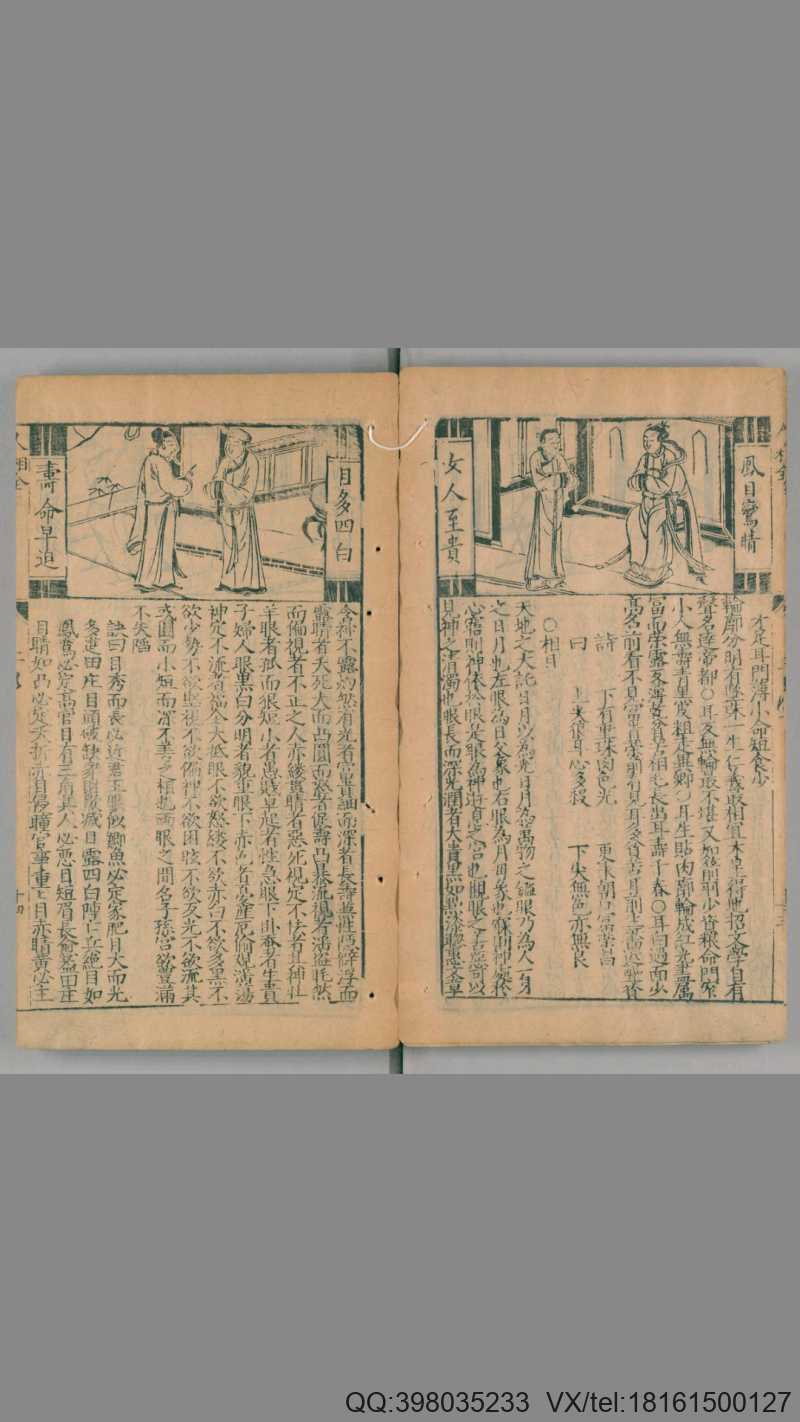 鳳目鸞睛
女人至貴
才足耳門薄小命短食少
輪廓分明有墜珠一生仁義最相宜木星得地招文學自有
聲名達帝都○耳反無輪最不堪又如箭羽少資粮命門窄
小人無壽青黑皮粗走異鄉○耳生貼肉廓輪成紅光主屬
富而榮露反薄
高名前看不見
詩 下有垂珠肉色光 更來朝口富榮昌
曰 上尖狼耳心多殺 下尖無色亦無良
○相目
天地之大託日月以為光日月為萬物之鑑眼乃為人一身
之日月也左眼為日父象也右眼為月母象也寐則神處於
心寤則神依於眼是眼為神遊息之宮也觀眼之善惡可以
見神之清濁也眼長而深光潤者大貴黑如點漆聰惠文章
目多四白
壽命早迫
含神不露灼然有光者富貴細而深者長壽兼性隠僻浮而
露睛者夭死大而凸圓而怒者促壽凸暴流視者淫盜眊然
而偏視者不正之人赤縷貫睛者惡死視定不怯者其神壯
羊眼者孤而狠短小者愚賤卓起者性急眼下卧蚕者生貴
子婦人眼黑白分明者貌重眼下赤色者憂產厄偷視淫蕩
神定不流者福全大抵眼不欲怒縷不欲赤白不欲多黑不
欲少勢不欲竪視不欲偏神不欲困眩不欲反光不欲流其
或圓而小短而深不善之相也兩眼之間名子孫宮欲豐滿
不失陷
訣曰目秀而長必近君王眼似鯽魚必定家肥目大而光
多進田庄目頭破缺家財歇滅目露四白陣亡兵絕目如
鳳鸞必定高官目有三角其人必惡目短眉長愈益田庄
目睛如凸必定夭折赤目侵瞳官事重重目赤睛黃必主
十四
QQ:398035233 VX/tel:18161500127